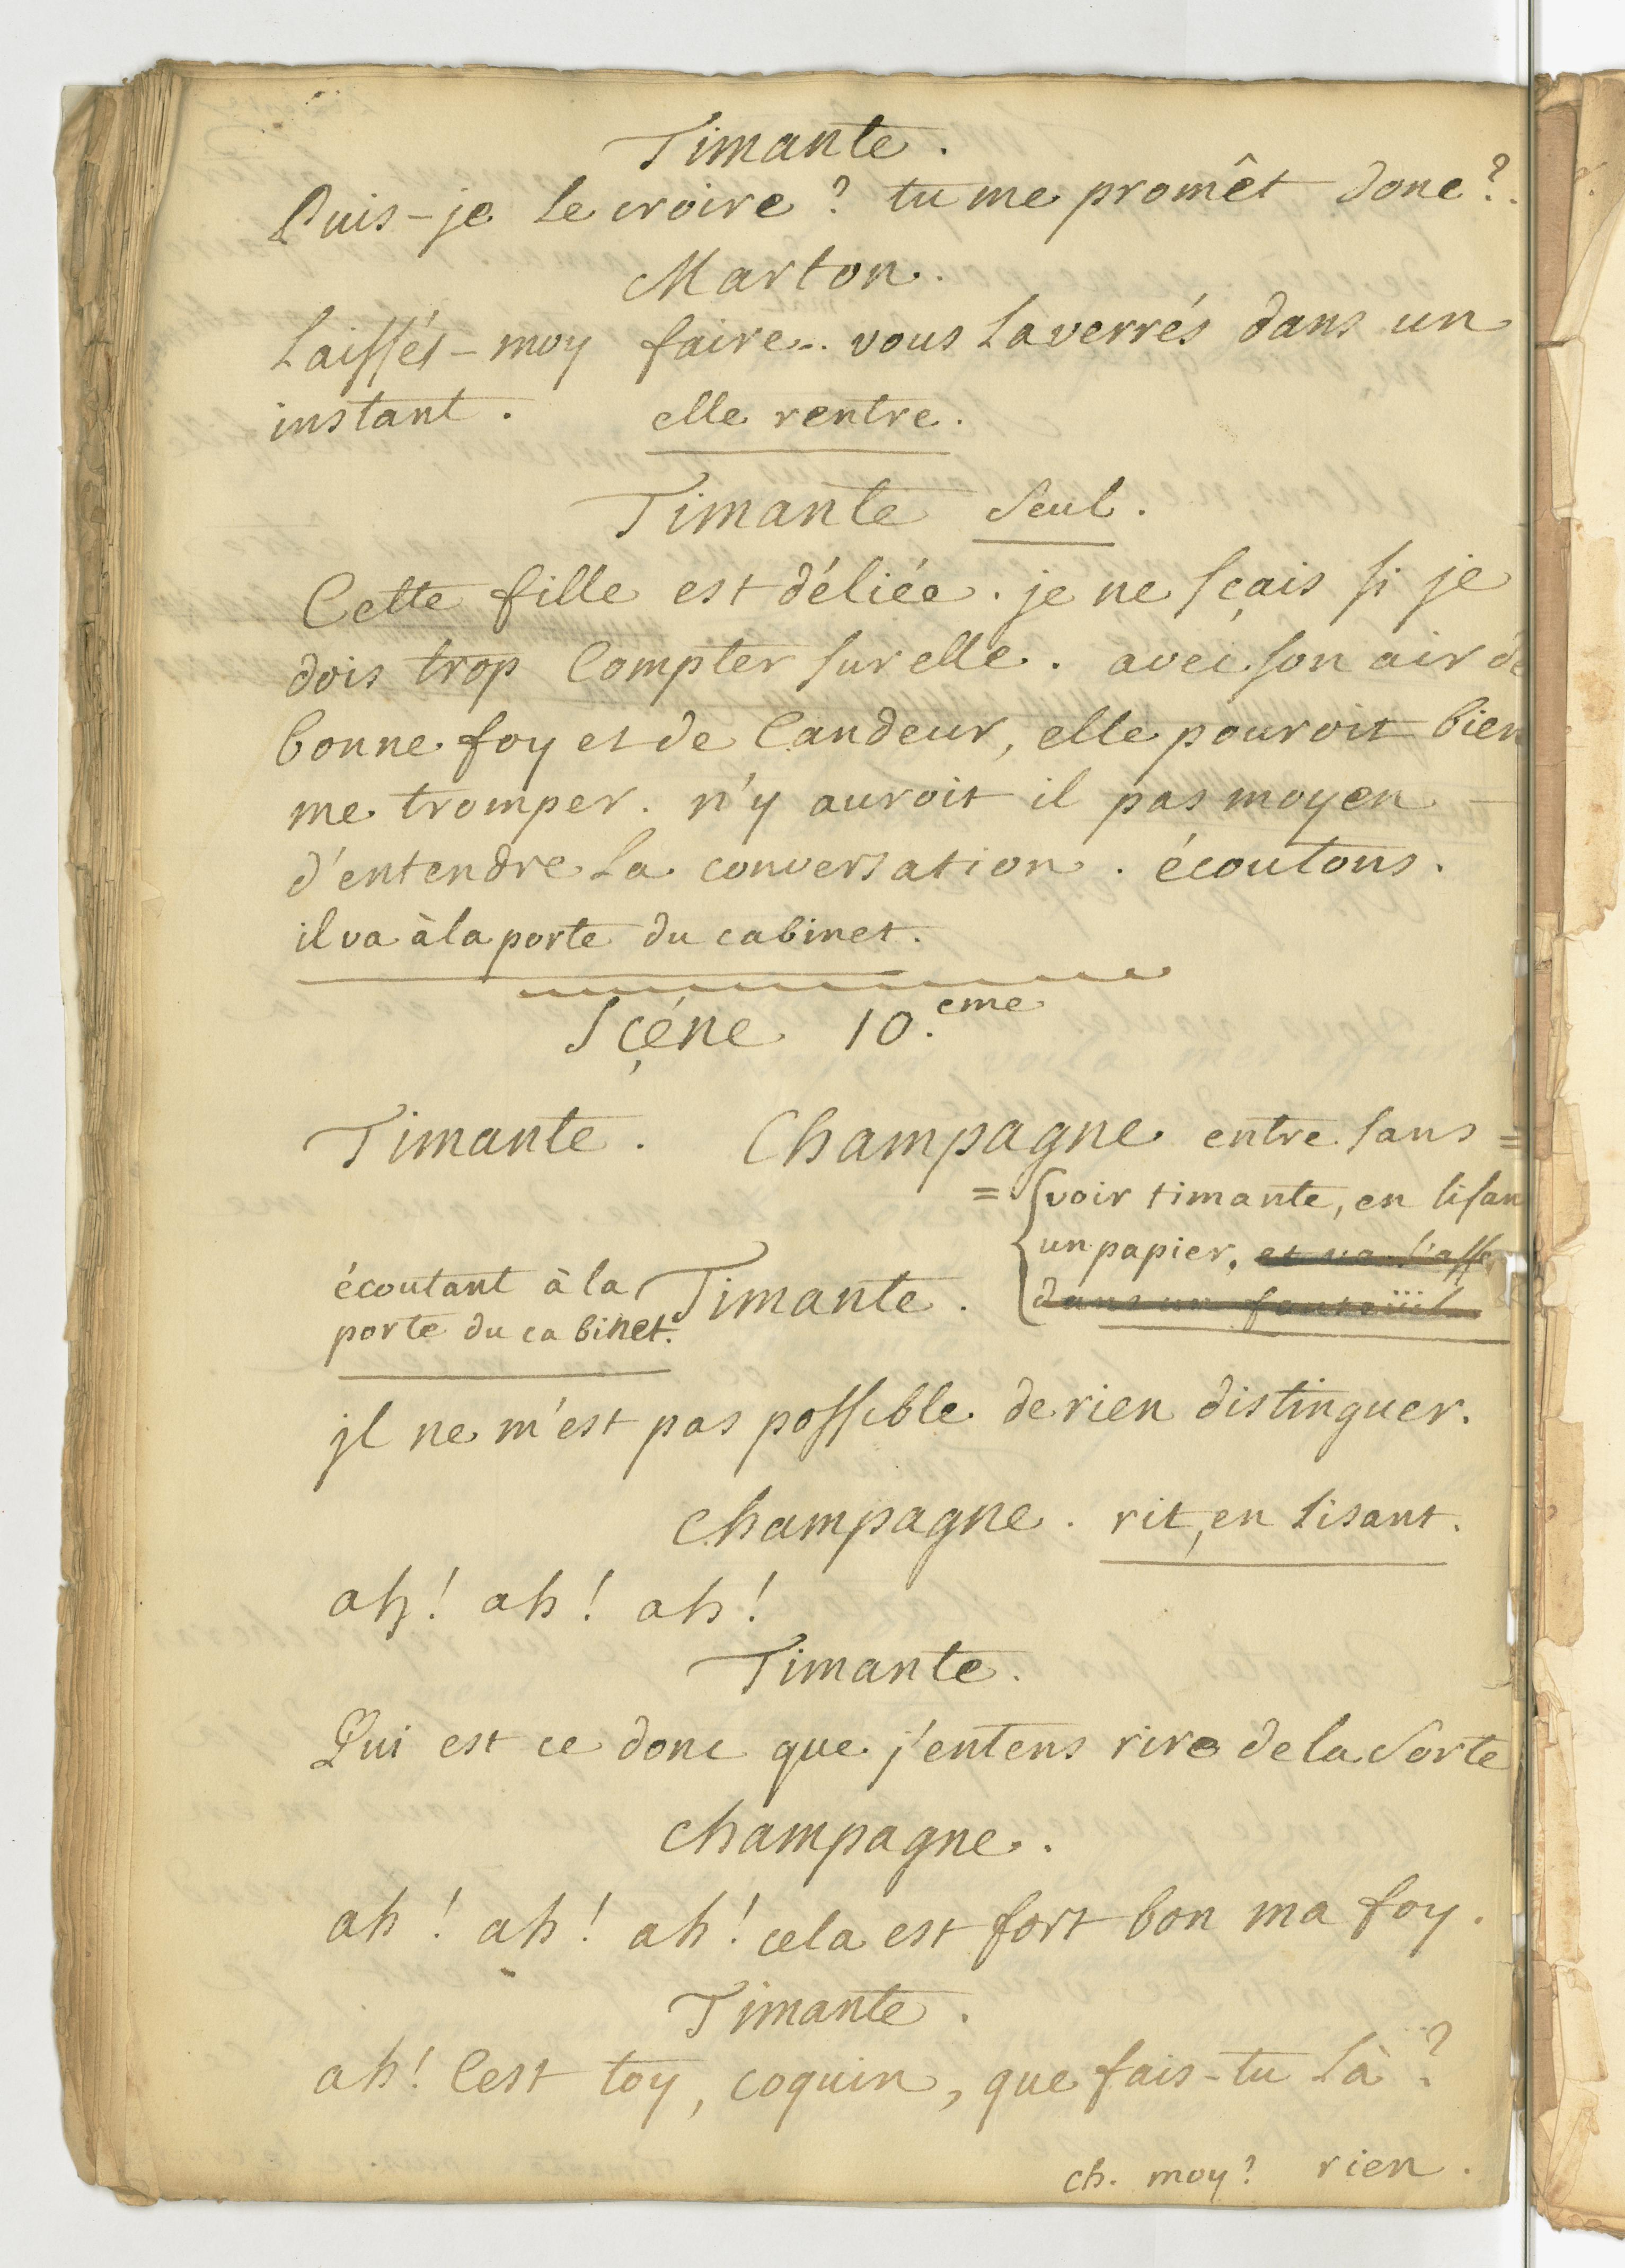 Timante.
Puis-je le croire? tu me promêt donc?.
Marton.
Laissés-moy faire.. vous la verrés dans un
instant. elle rentre.
Timante seul.
Cette fille est déliée. je ne sçais si je
dois trop compter sur elle. avec son air de
bonne foy et de candeur, elle pouroit bien
me tromper. n'y auroit il pas moyen
d'entendre la conversation. écoutons.
il va à la porte du cabinet.
Sçéne 10.eme
Timante. Champagne entre sans =
= voir timante, en lisan
un papier, et va s'asse
dans un fauteüil
écoutant à la Timante.
porte du cabinet.
jl ne m'est pas possible de rien distinguer.
champagne. rit, en lisant.
ah! ah! ah!
Timante.
Qui est ce donc que j'entens rire de la sorte
champagne.
ah! ah! ah! cela est fort bon ma foy.
Timante.
ah! c'est toy, coquin, que fais-tu là?
ch. moy? rien.